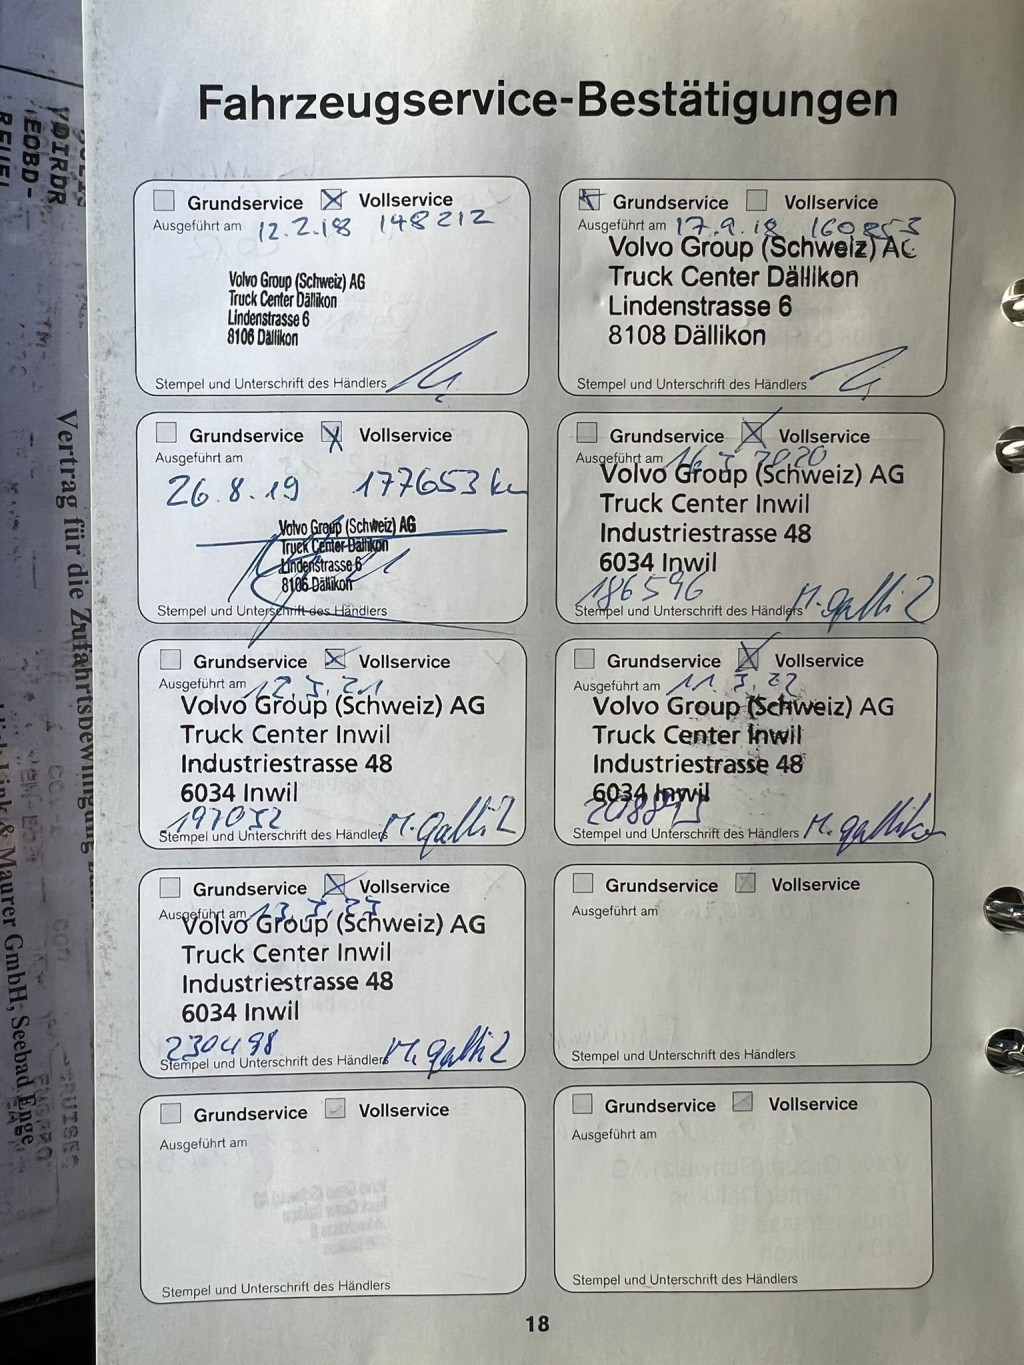 Fahrzeugservice-Bestätigungen
Grundservice Vollservice
Ausgeführt am 12.2.18 148212
Volvo Group (Schweiz) AG
Truck Center Dällikon
Lindenstrasse 6
8106 Dällikon
Stempel und Unterschrift des Händlers
Grundservice Vollservice
Ausgeführt am 17.9.18
Volvo Group (Schweiz) AG
Truck Center Dällikon
Lindenstrasse 6
8108 Dällikon
Stempel und Unterschrift des Händlers
Grundservice Vollservice
Ausgeführt am
26.8.19 177653 km
Volvo Group (Schweiz) AG
Truck Center Dällikon
Lindenstrasse 6
8106 Dällikon
Stempel und Unterschrift des Händlers
Grundservice Vollservice
Ausgeführt am 16.3.2020
Volvo Group (Schweiz) AG
Truck Center Inwil
Industriestrasse 48
6034 Inwil
186596
Stempel und Unterschrift des Händlers
Grundservice Vollservice
Ausgeführt am 12.3.21
Volvo Group (Schweiz) AG
Truck Center Inwil
Industriestrasse 48
6034 Inwil
197032
Stempel und Unterschrift des Händlers
Grundservice Vollservice
Ausgeführt am 11.3.22
Volvo Group (Schweiz) AG
Truck Center Inwil
Industriestrasse 48
6034 Inwil
Stempel und Unterschrift des Händlers
Grundservice Vollservice
Ausgeführt am 13.3.23
Volvo Group (Schweiz) AG
Truck Center Inwil
Industriestrasse 48
6034 Inwil
230498
Stempel und Unterschrift des Händlers
Grundservice Vollservice
Ausgeführt am
Stempel und Unterschrift des Händlers
Grundservice Vollservice
Ausgeführt am
Stempel und Unterschrift des Händlers
Grundservice Vollservice
Ausgeführt am
Stempel und Unterschrift des Händlers
18
Vertrag für die Zufahrtsbewilligung
Maurer GmbH, Seebad Enge
EOBD-